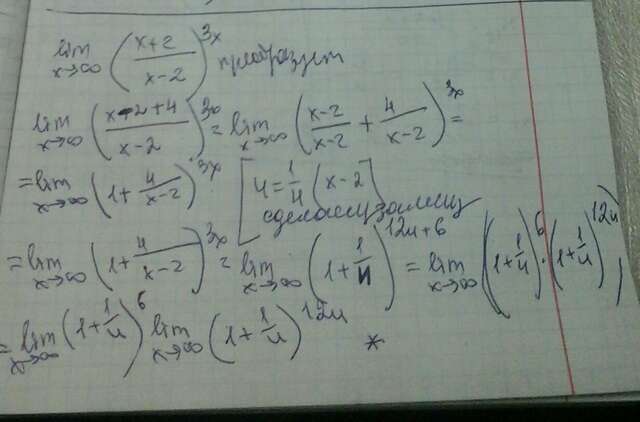 lim x→∞ ((x+2)/(x-2))^3x преобразуем
lim x→∞ ((x-2+4)/(x-2))^3x = lim x→∞ ((x-2)/(x-2) + 4/(x-2))^3x =
= lim x→∞ (1 + 4/(x-2))^3x [u = 1/4 (x-2)
сделаем замену]
= lim x→∞ (1 + 4/(x-2))^3x = lim x→∞ (1 + 1/u)^12u+6 = lim x→∞ ((1 + 1/u)^6 · (1 + 1/u)^12u)
= lim x→∞ (1 + 1/u)^6 lim x→∞ (1 + 1/u)^12u *